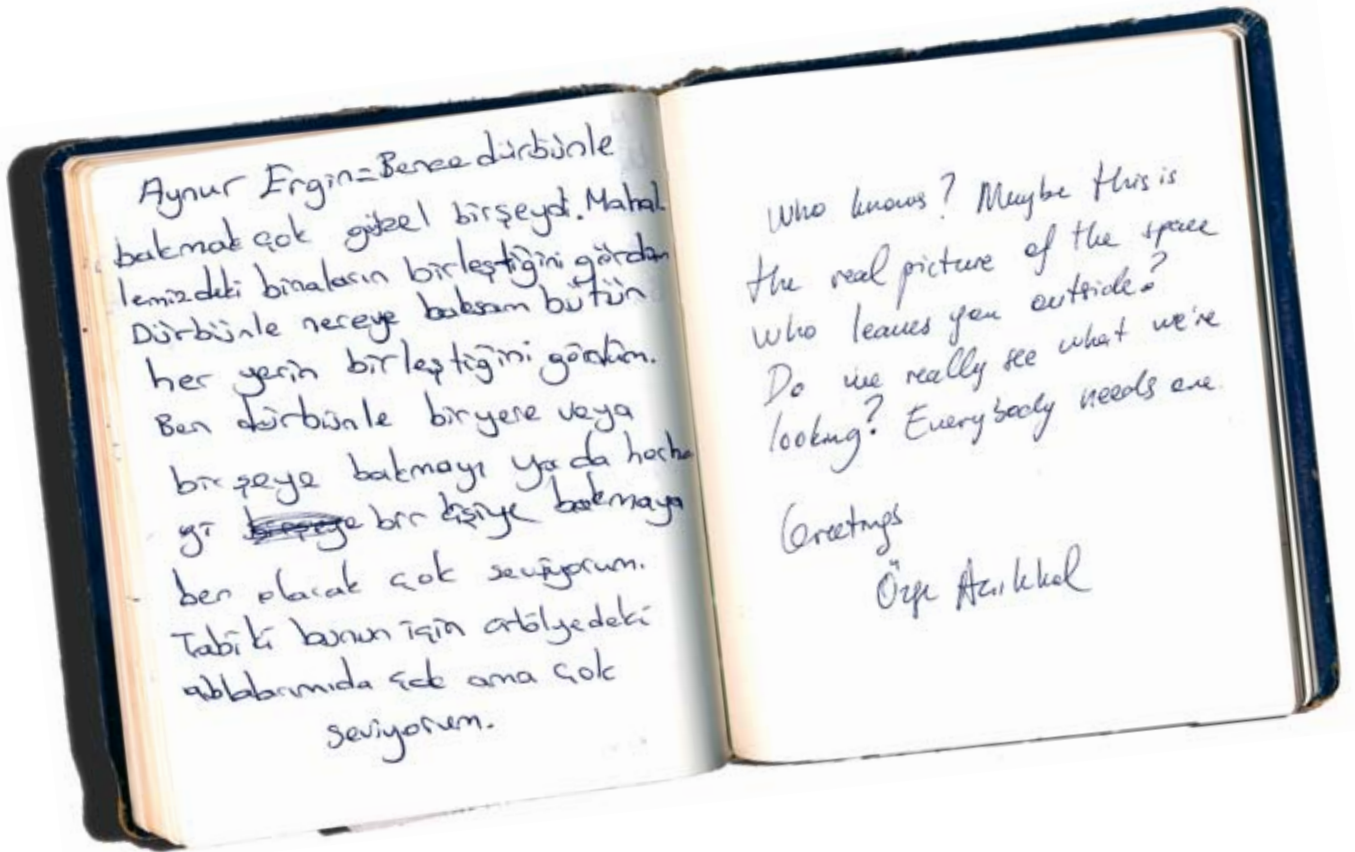 Aynur Ergin=Bence dürbünle
bakmak çok güzel birşeydi. Mahal
lemizdeki binaların birleştiğini gördüm
Dürbünle nereye baksam bütün
her yerin birleştiğini gördüm.
Ben dürbünle biryere veya
bir şeye bakmayı ya da herha
gi bir kişiye bakmaya
ben olarak çok seviyorum.
Tabi ki bunun için atölyedeki
ablalarımıda çok ama çok
seviyorum.
Who knows? Maybe this is
the real picture of the space
who leaves you outside?
Do we really see what we're
looking? Everybody needs one.
Greetings
Özge Açıkkol